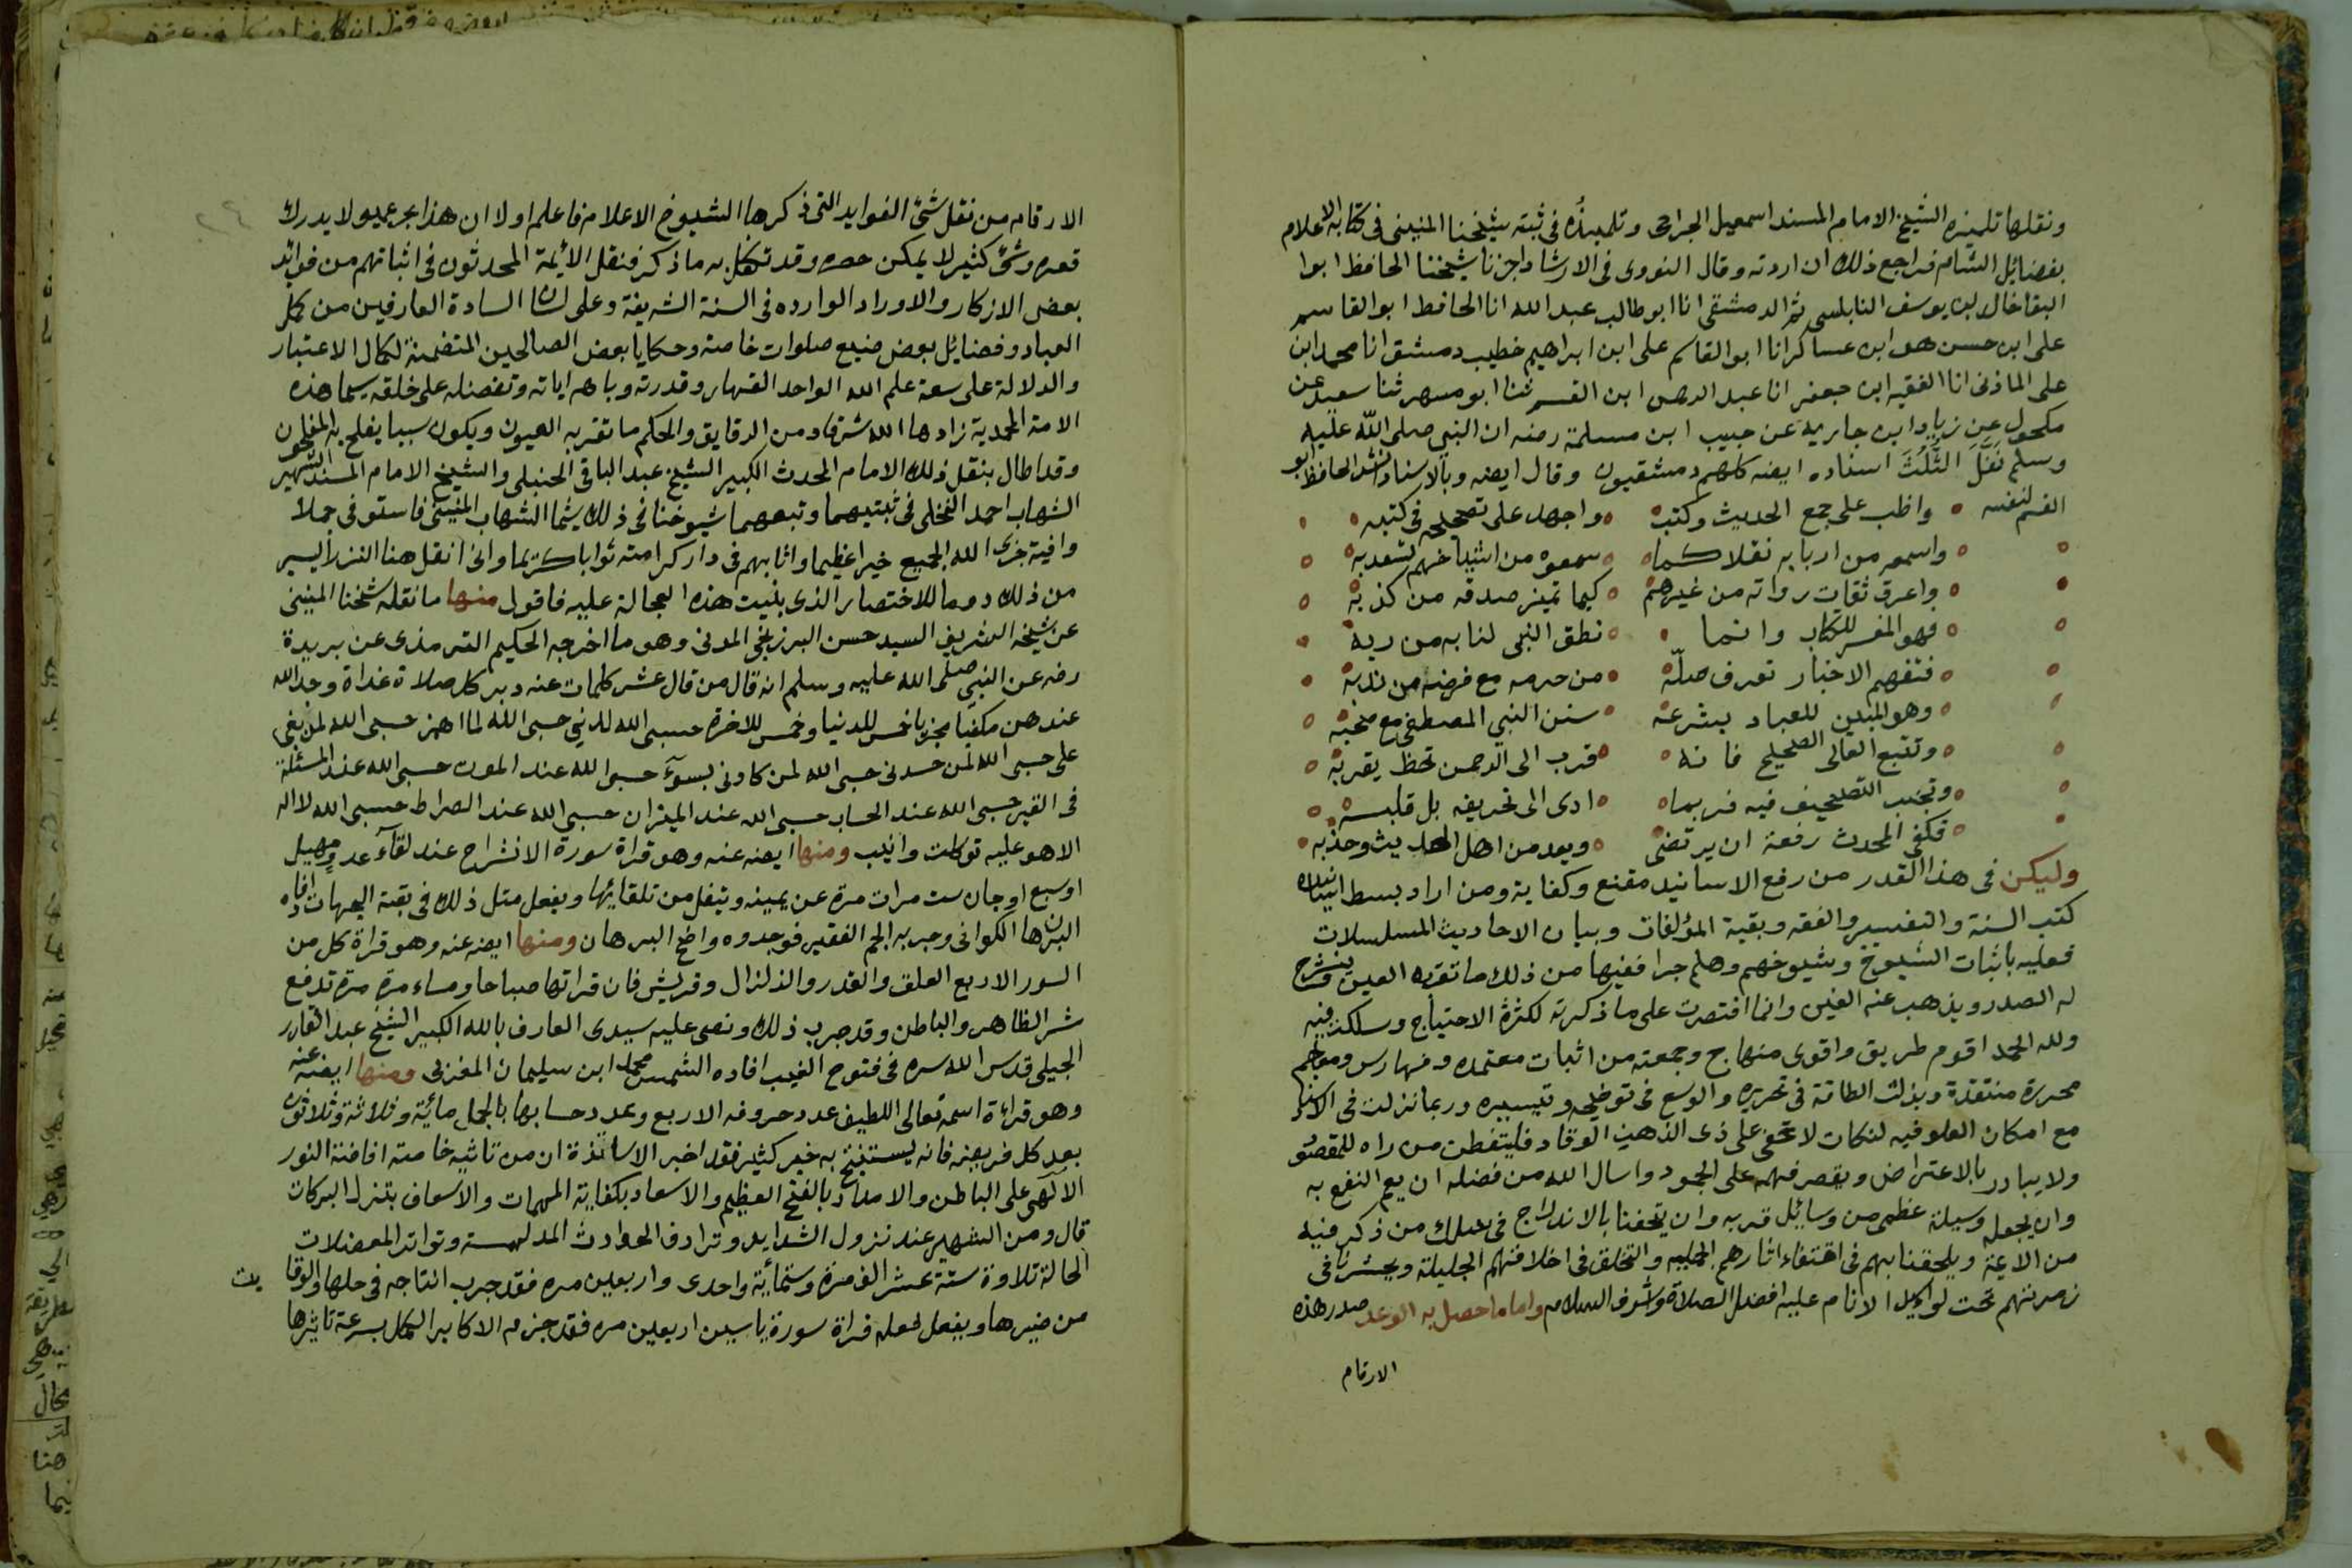 ونقلها تلميذه الشيخ الامام المسند اسمعيل الجراحى وتلميذه فى ثبته شيخنا المنينى فى كتابه الاعلام
بفضائل الشام فراجع ذلك ان اردته وقال النووى فى الارشاد اخبرنا شيخنا الحافظ ابوا
البقا خالد بن يوسف النابلسى ثم الدمشقى انا ابو طالب عبد الله انا الحافظ ابو القاسم
على ابن حسن هو ابن عساكر انا ابو القاسم على ابن ابراهيم خطيب دمشق انا محمد ابن
على المازنى انا الفقيه ابن جعفر انا عبد الرحمن ابن القسم ثنا ابو مسهر ثنا سعيد عن
مكحول عن زياد ابن جاريه عن حبيب ابن مسلمة رضه ان النبى صلى الله عليه
وسلم نَفَلَ الثُّلُثَ اسناده ايضه كلهم دمشقيون وقال ايضه وبالاسناد انشد الحافظ ابو
القسم لنفسه واظب على جمع الحديث وكتبه واجهد على تصحيحه فى كتبه
واسمعه من اربابه نقلا كما سمعوه من اشياخهم تسعد به
واعرف ثقات رواته من غيرهم كيما تميز صدقه من كذبه
فهو المفسر للكتاب وانما نطق النبى لنا به من ربه
فتفهم الاخبار تعرف حلّه من حرمه مع فرضه من ندبه
وهو المبين للعباد بشرعه سنن النبي المصطفى مع صحبه
وتتبع العالى الصحيح فانه قرب الى الرحمن تحظ بقربه
وتجنب التصحيف فيه فربما ادى الى تحريفه بل قلبه
فكفى المحدث رفعة ان يرتضى ويعد من اهل الحديث وحزبه
وليكن فى هذا القدر من رفع الاسانيد مقنع وكفاية ومن اراد بسط اسانيد
كتب السنة والتفسير والفقه وبقية المؤلفات وبيان الاحاديث المسلسلات
فعليه باثبات الشيوخ وشيوخهم وهلم جرا ففيها من ذلك ما تقر به العين وينشرح
له الصدر ويذهب عنه الغين وانما اقتصرت على ما ذكرته لكثرة الاحتياج وسلكت فيه
ولله الحمد اقوم طريق واقوى منهاج وجمعته من اثبات معتمده وفهارس ومعاجم
محررة منتقدة وبذلت الطاقة فى تحريره والوسع فى توضيحه وتيسيره وربما نزلت فى الاسناد
مع امكان العلو فيه لنكات لا تخفى على ذى الذهن الوقاد فليتفطن من راه للمقصود
ولا يبادر بالاعتراض ويقصر فهمه على الجمود واسال الله من فضله ان يعم النفع به
وان يجعله وسيلة عظمى من وسائل قربه وان يتحفنا بالاندراج فى سلك من ذكر فيه
من الائمة ويلحقنا بهم فى اقتفاء اثارهم الجليه والتخلق فى اخلاقهم الجليلة ويحشرنا فى
زمرتهم تحت لواء كل الانام عليه افضل الصلاة واشرف السلام واما ما حصل به الوعد صدر هذه
الارقام
الارقام من نقل شئ الفوايد التى ذكرها الشيوخ الاعلام فاعلم اولا ان هذا بحر عميق لا يدرك
قعره وشئ كثير لا يمكن حصره وقد تكفل به ما ذكر فنقل الائمة المحدثون فى اثباتهم من فوائد
بعض الاذكار والاوراد الوارده فى السنة الشريفة وعلى لسان السادة العارفين من كمل
العباد وفضايل بعض صيع صلوات خاصة وحكايا بعض الصالحين المتضمنة لكمال الاعتبار
والدلالة على سعة علم الله الواحد القهار وقدرته وباهر اياته وتفضله على خلقه سيما هذه
الامة المحمدية زادها الله شرفا ومن الدقايق والحكم ما تقر به العيون ويكون سببا يفلح به المفلحون
وقد اطال بنقل ذلك الامام المحدث الكبير الشيخ عبد الباقى الحنبلى والشيخ الامام المسند الشهير
الشهاب احمد النخلى فى ثبتيهما وتبعهما شيوخنا فى ذلك سيما الشهاب المنينى فاستوفى جملا
وافية جزى الله الجميع خيرا عظيما واثابهم فى دار كرامته ثوابا كريما وانى انقل هنا النزر اليسير
من ذلك روما للاختصار الذى بنيت هذه العجالة عليه فاقول منها ما نقله شيخنا المنينى
عن شيخه الشريف السيد حسن البرزنجى المدنى وهو ما اخرجه الحكيم الترمذى عن بريدة
رضه عن النبى صلى الله عليه وسلم انه قال من قال عشر كلمات عند دبر كل صلاة غداة وجد الله
عندهن مكفيا مجزيا خمس للدنيا وخمس للاخرة حسبى الله لدينى حسبى الله لما اهمنى حسبى الله لمن بغى
على حسبى الله لمن حسدنى حسبى الله لمن كادنى بسوء حسبى الله عند الموت حسبى الله عند المسئلة
فى القبر حسبى الله عند الحساب حسبى الله عند الميزان حسبى الله عند الصراط حسبى الله لا اله
الا هو عليه توكلت وانيب ومنها ايضه عنه وهو قراة سورة الانشراح عند لقاء عدو مهيل
اوسبع اوجان ست مرات مرة عن يمينه ويتفل من تلقائها ويفعل مثل ذلك فى بقية الجهات افاده
البرهان الكورانى وجربه الجم الغفير فوجدوه واضح البرهان ومنها ايضه عنه وهو قراة كل من
السور الاربع العلق والقدر والزلزال وقريش فان قراتها صباحا ومساء مرة مرة تدفع
شر الظاهر والباطن وقد جرب ذلك ونص عليه سيدى العارف بالله الكبير الشيخ عبد القادر
الجيلى قدس الله سره فى فتوح الغيب افاده الشمس محمد ابن سليمان المغربى ومنها ايضه عنه
وهو قراءة اسمه تعالى اللطيف عدد حروفه الاربع وعدد حسابها بالجمل مائة وثلاثة وثلاثون
بعد كل فريضه فانه يستنتج به خير كثير فقد اخبر الاساتذة ان من تاثيره خاصة افاضة النور
الآلهى على الباطن والامداد بالفتح العظيم والاسعاد بكفاية المهمات والاسعاف بتنزل البركات
قال ومن الشهير عند نزول الشدايد وترادف الحوادث المدلهمة وتواتر المعضلات
الحالة تلاوة ستة عشر الف مرة وستمائة واحدى واربعين مره فقد جرب انتاجه فى حلها والوقا
يت
من ضيرها ويفعل لحله قراة سورة ياسين اربعين مره فقد جزم الاكابر الكمل بسرعة تاثيرها